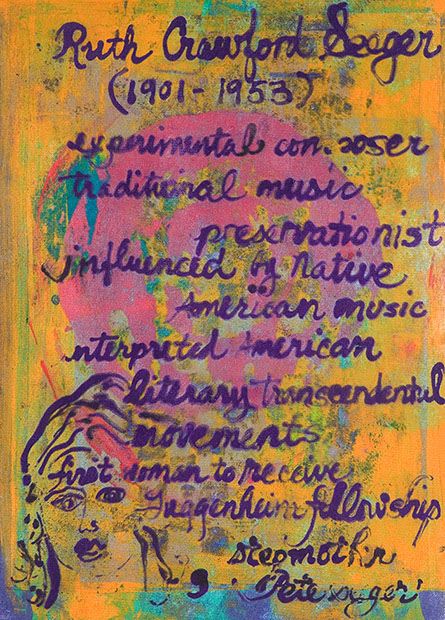 Ruth Crawford Seeger
(1901-1953)
experimental composer
traditional music
preservationist
influenced by Native
American music
interpreted American
literary transcendental
movements
first woman to receive
Guggenheim fellowship
stepmother
Pete Seeger